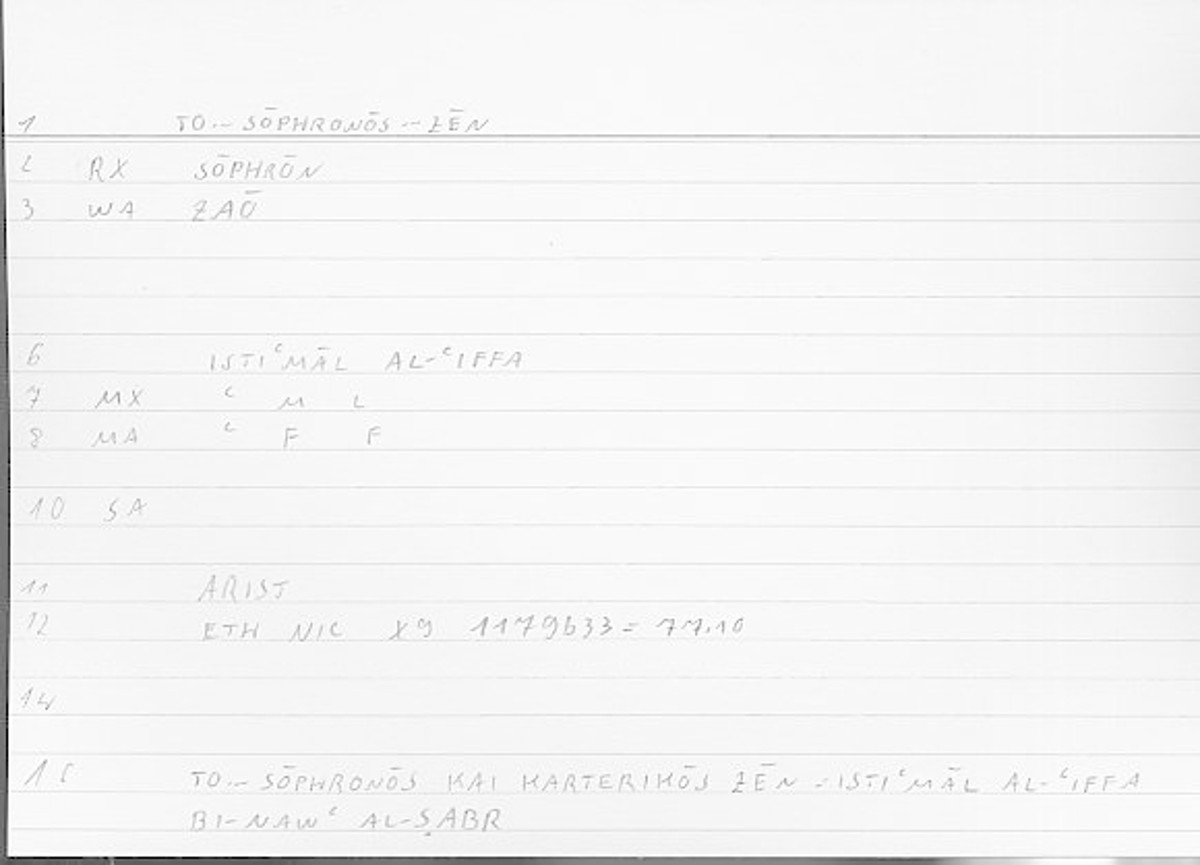 1 TO.- SŌPHRONŌS -- ZĒN
2 RX SŌPHRŌN
3 WA ZAŌ
6 ISTIʿMĀL AL-ʿIFFA
7 MX ʿ M L
8 MA ʿ F F
10 SA
11 ARIST
12 ETH NIC X9 1179b33 = 77.10
14
15 TO.- SŌPHRONŌS KAI KARTERIKŌS ZĒN = ISTIʿMĀL AL-ʿIFFA
BI-NAWʿ AL-ṢABR